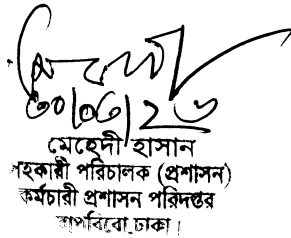 ৩০/০৩/২৬
মেহেদী হাসান
সহকারী পরিচালক (প্রশাসন)
কর্মচারী প্রশাসন পরিদপ্তর
বাপবিবো, ঢাকা।